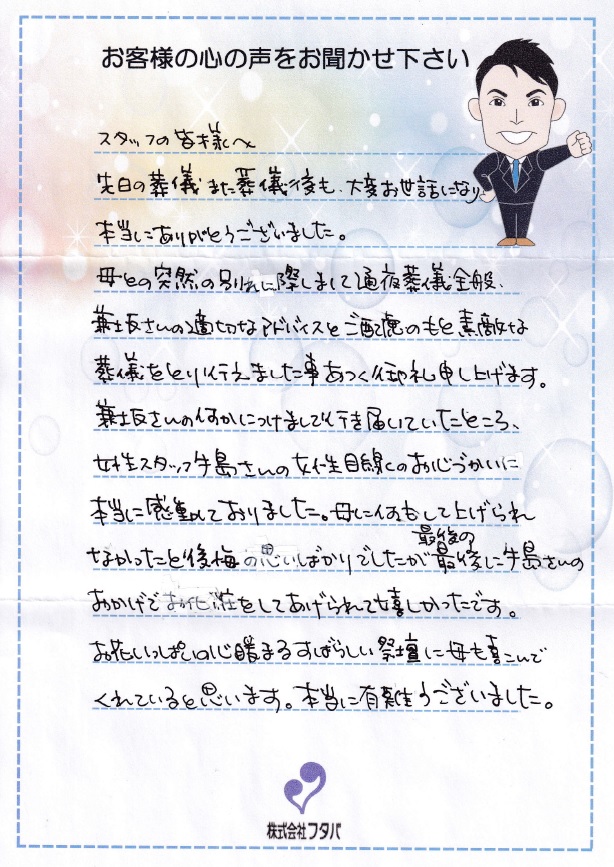 お客様の心の声をお聞かせ下さい
スタッフの皆様へ
先日の葬儀また葬儀後も、大変お世話になり
本当にありがとうございました。
母との突然の別れに際しまして通夜葬儀全般、
兼坂さんの適切なアドバイスとご配慮のもと素敵な
葬儀をとり行えました事あつく御礼申し上げます。
兼坂さんの何かにつけまして行き届いていたところ、
女性スタッフ牛島さんの女性目線のお心づかいに
本当に感動しておりました。母に何もして上げられ
最後の
なかったと後悔の思いばかりでしたが最後に牛島さんの
おかげでお化粧をしてあげられて嬉しかったです。
お花いっぱいの心暖まるすばらしい祭壇に母も喜こんで
くれていると思います。本当に有難うございました。
株式会社フタバ